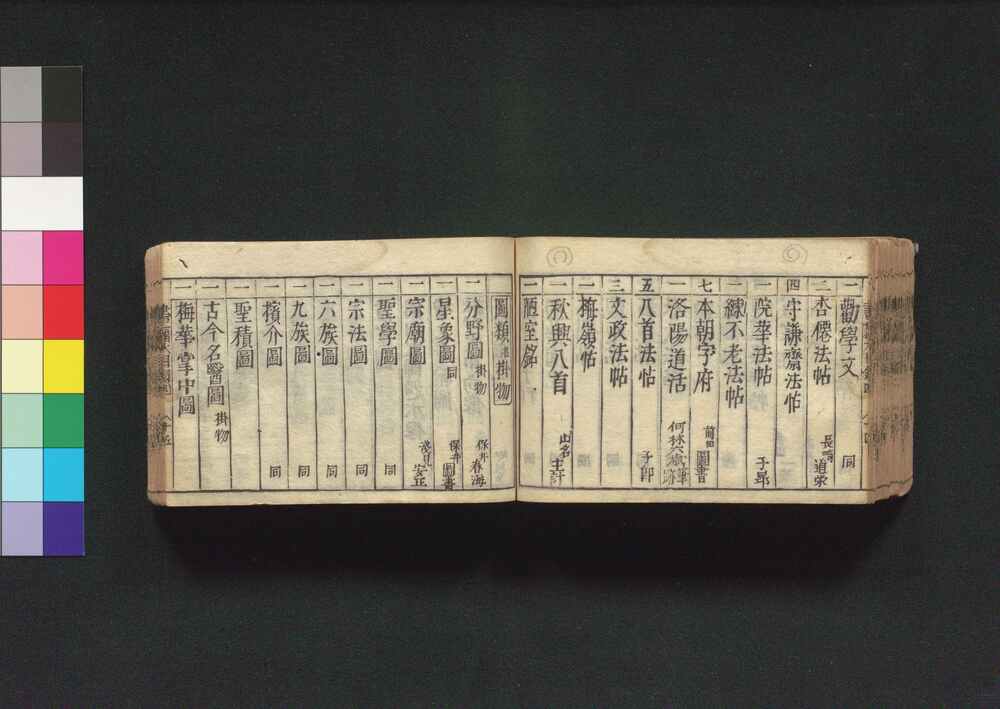 一 勸學文 同
二 杏僊法帖 長崎 道栄
四 守謙齋法帖
一 院華法帖 子昂
一 練不老法帖
七 本朝字府 前田 圖書
一 洛陽道活 何林 筆跡
五 八首法帖 子卽
三 文政法帖
一 梅嶺帖
一 秋興八首 山名
一 陋室銘
圖類 掛物
一 分野圖 掛物 保井 春海
一 星象圖 同 保井 圖書
一 宗廟圖 淺見 安正
一 聖學圖 同
一 宗法圖 同
一 六族圖 同
一 九族圖 同
一 擯介圖 同
一 聖積圖
一 古今名醫圖 掛物
一 梅華掌中圖